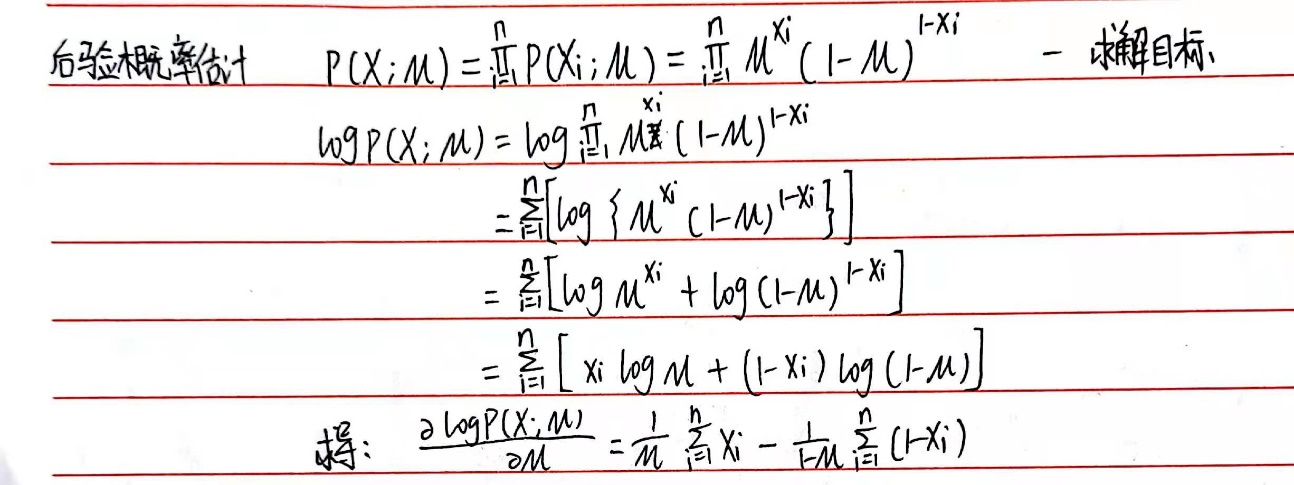 后验概率估计 P(X;μ) = ∏_{i=1}^{n} P(X_i;μ) = ∏_{i=1}^{n} μ^{X_i} (1-μ)^{1-X_i} - 求解目标
log P(X;μ) = log ∏_{i=1}^{n} μ^{X_i} (1-μ)^{1-X_i}
= ∑_{i=1}^{n} [log { μ^{X_i} (1-μ)^{1-X_i} }]
= ∑_{i=1}^{n} [log μ^{X_i} + log (1-μ)^{1-X_i}]
= ∑_{i=1}^{n} [ X_i log μ + (1-X_i) log (1-μ)]
求导: ∂ log P(X;μ) / ∂μ = 1/μ ∑_{i=1}^{n} X_i - 1/(1-μ) ∑_{i=1}^{n} (1-X_i)